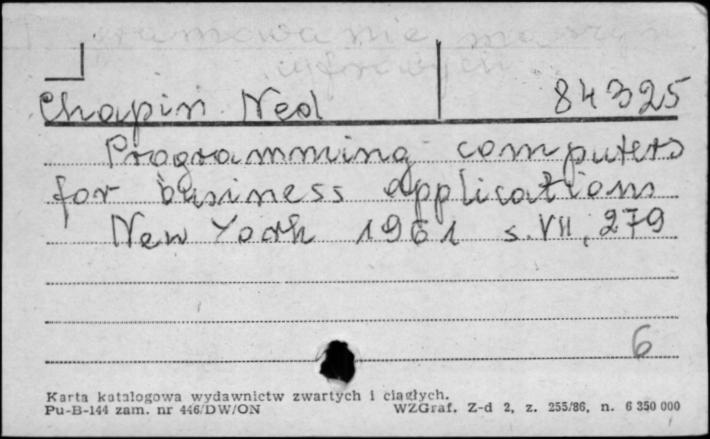 Chapin Ned 84325
Programming computers
for business applications
New York 1961 s. VII, 279
6
Karta katalogowa wydawnictw zwartych i ciągłych.
Pu-B-144 zam. nr 446/DW/ON WZGraf. Z-d 2, z. 255/86, n. 6 350 000